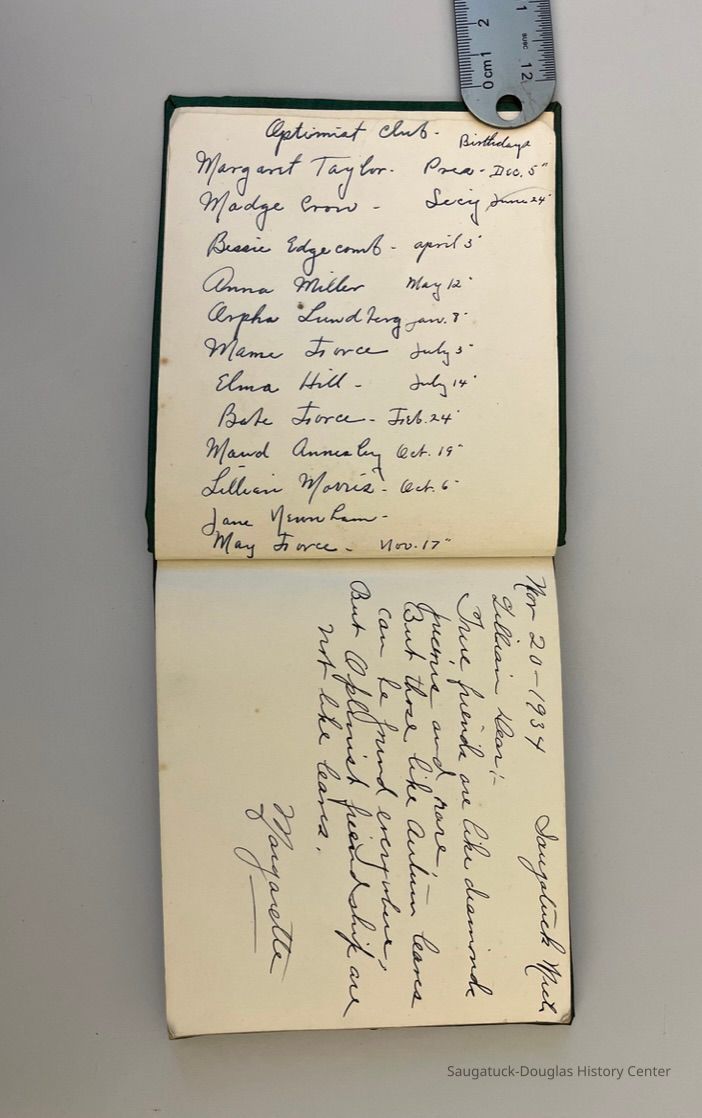 Optimist Club.
Birthdays
Margaret Taylor. Pres. Dec. 5"
Madge Crow - Secy June 24
Bessie Edgecomb - April 3"
Anna Miller May 12"
Orpha Lundberg Jan. 8"
Mame Force July 5"
Elma Hill - July 14"
Bate Force - Feb. 24"
Maud Annesley Oct. 19"
Lillian Morris. Oct. 6"
Jane Newnham -
May Force - Nov. 17"
Nov 20-1934 Saugatuck Mich
Lillian Dear:-
True friends are like diamonds
precious and rare
But those like Autumn leaves
can be found everywhere,
But Optimist friendship are
not like leaves.
Margarette
Saugatuck-Douglas History Center
0 cm 1 2
12 1